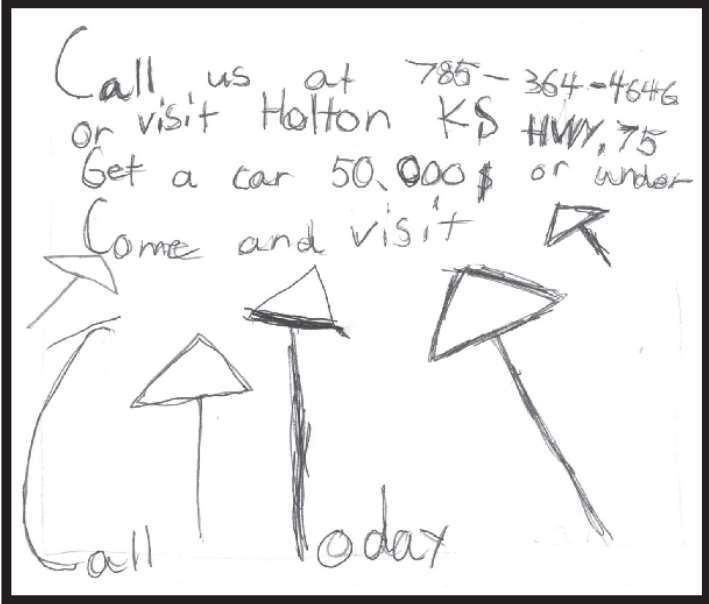 Call us at 785-364-4646
or visit Holton KS HWY, 75
Get a car 50,000$ or under
Come and visit
Call Today